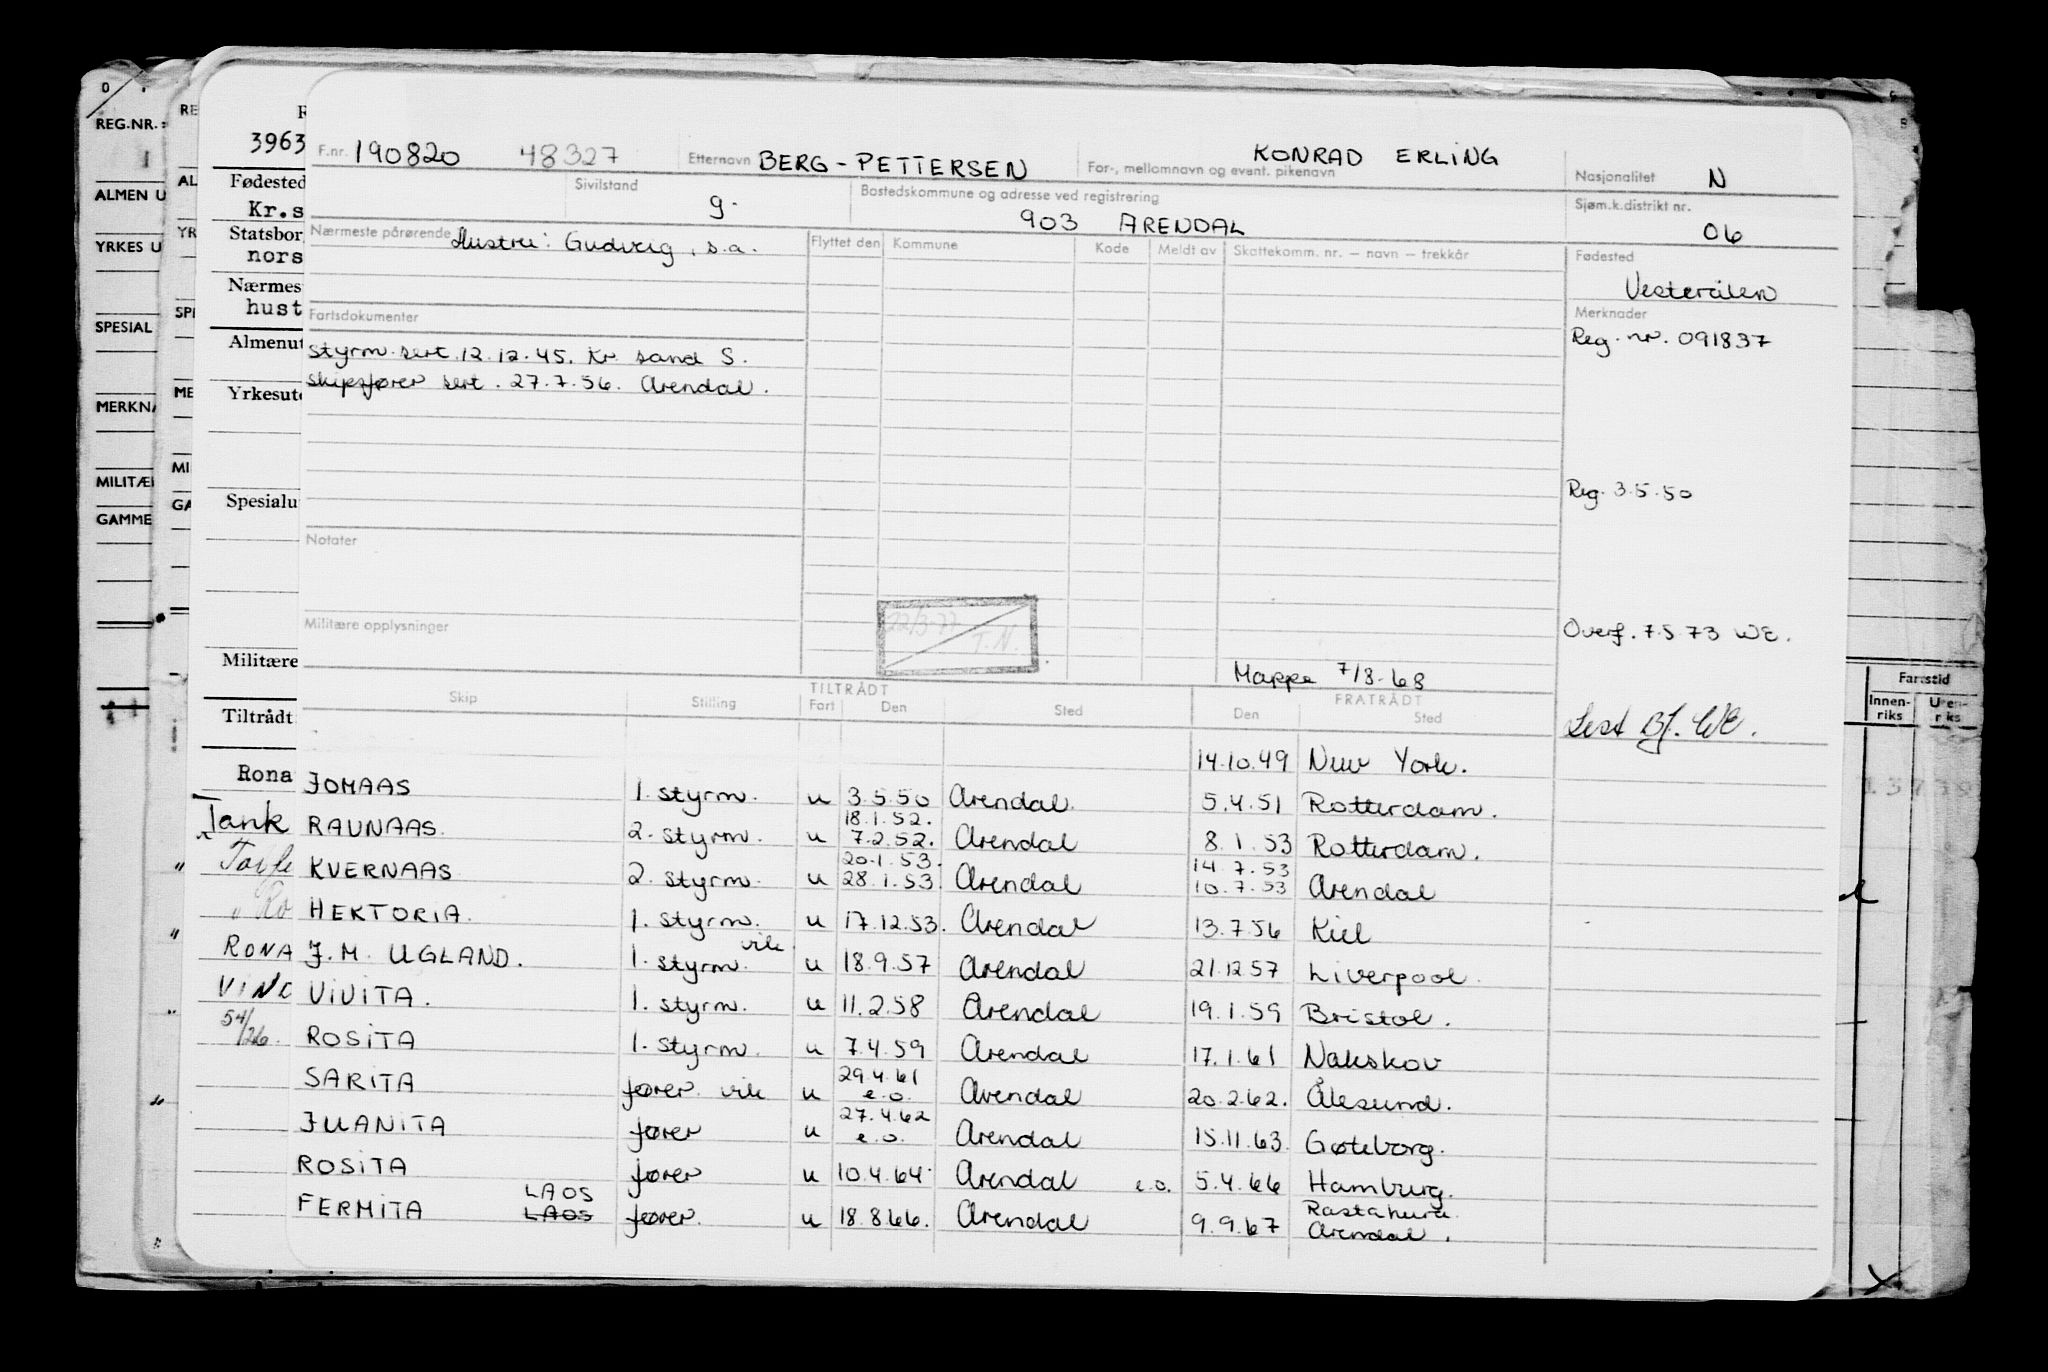 REG.NR.
ALMEN U
YRKES U
SPECIAL
MERKNA
MILITÆ
GAMME
RE
AL
YR
SPE
ME
MI
GA
R
3963
Fødested
Kr.s
Statsbor
nors
Nærmes
hust
Almenut
Yrkesut
Spesialu
Militære
Tiltrådt
Rona
Tank
RONA
VIND
54/26.
F.nr. 190820 48327 Etternavn BERG-PETTERSEN For-, mellomnavn og event. pikenavn KONRAD ERLING Nasjonalitet N
Sivilstand g. Bostedskommune og adresse ved registrering 903 ARENDAL Sjøm.k.distrikt nr. 06
Nærmeste pårørende Hustru: Gudveig, s.a. Flyttet den Kommune Kode Meldt av Skattekomm. nr. – navn – trekkår Fødested
Fartsdokumenter Merknader
styrm. sert. 12.12.45. Kr. sand S. Reg. nr. 091837
skipsfører sert. 27.7.56. Arendal.
Reg. 3.5.50
Notater
22/3-77 T.N.
Militære opplysninger Overf. 7.5.73 WE.
Mappe 7/8-68
Skip Stilling TILTRÅDT Fart Den Sted FRATRÅDT Den Sted
Lest Bf. WE.
14.10.49 New York.
JOMAAS 1. styrm. u 3.5.50 Arendal. 5.4.51 Rotterdam.
RAUNAAS. 2. styrm. u 18.1.52. 7.2.52. Arendal 8.1.53 Rotterdam.
KVERNAAS 2. styrm. u 20.1.53. 28.1.53. Arendal 14.7.53 10.7.53 Arendal
HEKTORIA. 1. styrm. u 17.12.53. Arendal 13.7.56 Kiel
J.M. UGLAND. 1. styrm. vik u 18.9.57 Arendal 21.12.57 Liverpool.
VIVITA. 1. styrm. u 11.2.58 Arendal 19.1.59 Bristol.
ROSITA 1. styrm. u 7.4.59 Arendal 17.1.61 Nakskov
SARITA fører vik u 29.4.61 e.o. Arendal 20.2.62. Ålesund.
JUANITA fører u 27.4.62 e.o. Arendal 15.11.63. Gøteborg.
ROSITA fører u 10.4.64. Arendal e.o. 5.4.66 Hamburg.
FERMITA LAOS LAOS fører. u 18.8.66. Arendal 9.9.67 Arendal.
Fartstid
Innen-
riks
Uten-
riks